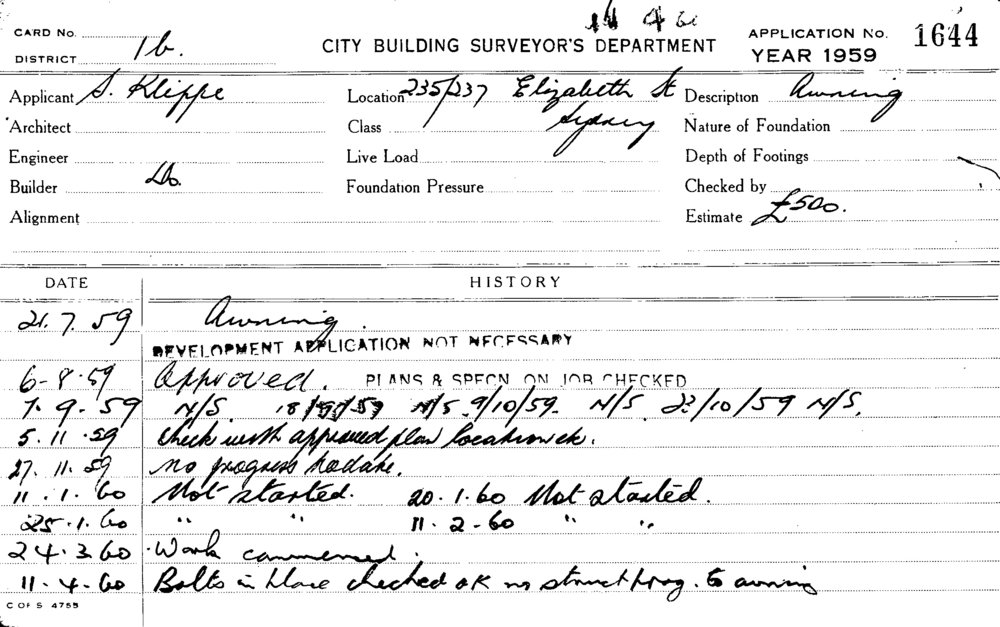 11 4 60
CARD No.
DISTRICT 1b.
CITY BUILDING SURVEYOR'S DEPARTMENT
APPLICATION No. 1644
YEAR 1959
Applicant S. Klippe
Location 235/237 Elizabeth St
Sydney
Description Awning
Architect
Class
Nature of Foundation
Engineer
Live Load
Depth of Footings
Builder Do.
Foundation Pressure
Checked by
Alignment
Estimate £500.
DATE HISTORY
21.7.59 Awning.
DEVELOPMENT APPLICATION NOT NECESSARY
6-8-59 Approved. PLANS & SPECN ON JOB CHECKED
7-9-59 N/S. 18/9/59 N/S 9/10/59. N/S. 23/10/59 N/S.
5.11.59 Check with approved plan
27.11.59 No progress to date.
11.1.60 Not started. 20.1.60 Not started.
25.1.60 " " 11-2-60 " "
24.3.60 Work commenced.
11.4.60 Bolts in place checked OK no struct prog. to awning
C OF S 4755